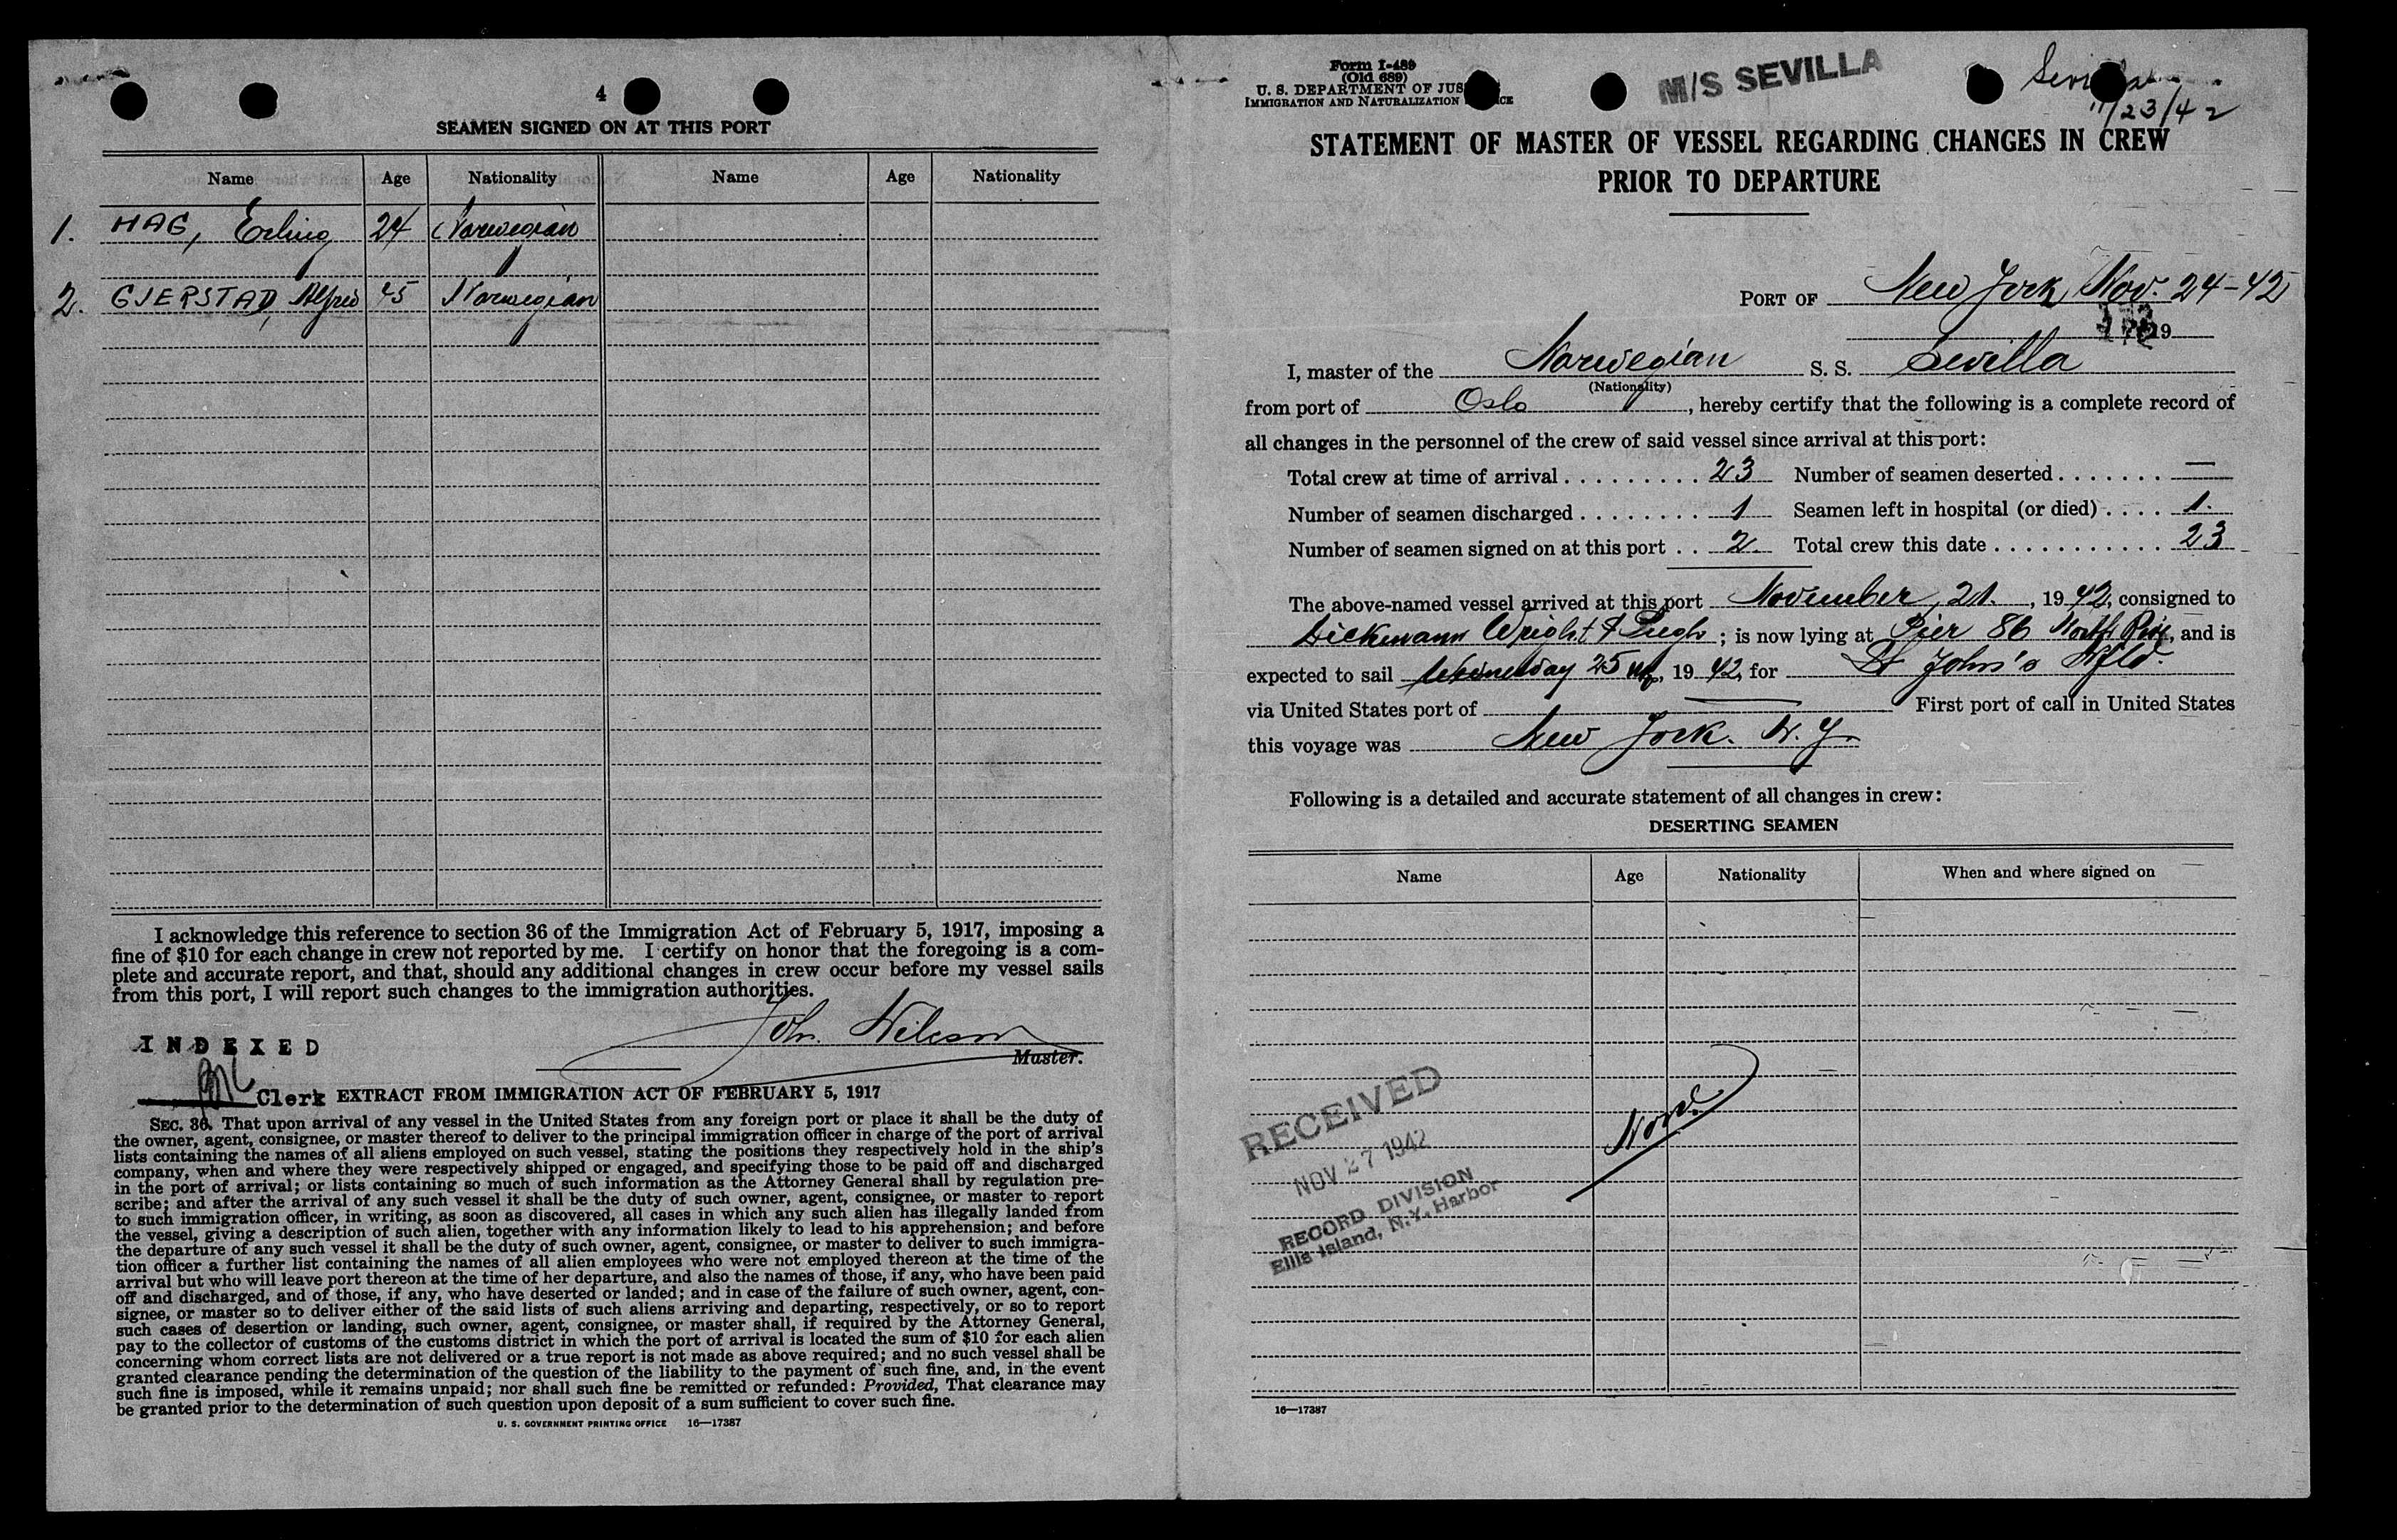 4
SEAMEN SIGNED ON AT THIS PORT
Name Age Nationality Name Age Nationality
1. HAG, Erling 24 Norwegian
2. GJERSTAD, Alfred 45 Norwegian
I acknowledge this reference to section 36 of the Immigration Act of February 5, 1917, imposing a
fine of $10 for each change in crew not reported by me. I certify on honor that the foregoing is a com-
plete and accurate report, and that, should any additional changes in crew occur before my vessel sails
from this port, I will report such changes to the immigration authorities.
Master.
INDEXED
Clerk EXTRACT FROM IMMIGRATION ACT OF FEBRUARY 5, 1917
SEC. 36. That upon arrival of any vessel in the United States from any foreign port or place it shall be the duty of
the owner, agent, consignee, or master thereof to deliver to the principal immigration officer in charge of the port of arrival
lists containing the names of all aliens employed on such vessel, stating the positions they respectively hold in the ship's
company, when and where they were respectively shipped or engaged, and specifying those to be paid off and discharged
in the port of arrival; or lists containing so much of such information as the Attorney General shall by regulation pre-
scribe; and after the arrival of any such vessel it shall be the duty of such owner, agent, consignee, or master to report
to such immigration officer, in writing, as soon as discovered, all cases in which any such alien has illegally landed from
the vessel, giving a description of such alien, together with any information likely to lead to his apprehension; and before
the departure of any such vessel it shall be the duty of such owner, agent, consignee, or master to deliver to such immigra-
tion officer a further list containing the names of all alien employees who were not employed thereon at the time of the
arrival but who will leave port thereon at the time of her departure, and also the names of those, if any, who have been paid
off and discharged, and of those, if any, who have deserted or landed; and in case of the failure of such owner, agent, con-
signee, or master so to deliver either of the said lists of such aliens arriving and departing, respectively, or so to report
such cases of desertion or landing, such owner, agent, consignee, or master shall, if required by the Attorney General,
pay to the collector of customs of the customs district in which the port of arrival is located the sum of $10 for each alien
concerning whom correct lists are not delivered or a true report is not made as above required; and no such vessel shall be
granted clearance pending the determination of the question of the liability to the payment of such fine, and, in the event
such fine is imposed, while it remains unpaid; nor shall such fine be remitted or refunded: Provided, That clearance may
be granted prior to the determination of such question upon deposit of a sum sufficient to cover such fine.
U. S. GOVERNMENT PRINTING OFFICE 16—17387
Form I-489
(Old 689)
U. S. DEPARTMENT OF JUS
IMMIGRATION AND NATURALIZATION ICE
M/S SEVILLA
11/23/42
STATEMENT OF MASTER OF VESSEL REGARDING CHANGES IN CREW
PRIOR TO DEPARTURE
PORT OF New York, Nov. 24-42
19
I, master of the Norwegian S. S. Sevilla
(Nationality)
from port of Oslo, hereby certify that the following is a complete record of
all changes in the personnel of the crew of said vessel since arrival at this port:
Total crew at time of arrival . . . . . . . . . 23 Number of seamen deserted . . . . . . . —
Number of seamen discharged . . . . . . . . 1 Seamen left in hospital (or died) . . . . 1.
Number of seamen signed on at this port . . 2. Total crew this date . . . . . . . . . . . . 23
The above-named vessel arrived at this port November, 21., 1942, consigned to
Dickmann Wright & Pugh; is now lying at Pier 86 North River, and is
expected to sail Wednesday 25, 1942, for St John's Nfld.
via United States port of — First port of call in United States
this voyage was New York. N. Y.
Following is a detailed and accurate statement of all changes in crew:
DESERTING SEAMEN
Name Age Nationality When and where signed on
None
RECEIVED
NOV 27 1942
RECORD DIVISION
Ellis Island, N.Y. Harbor
16—17387